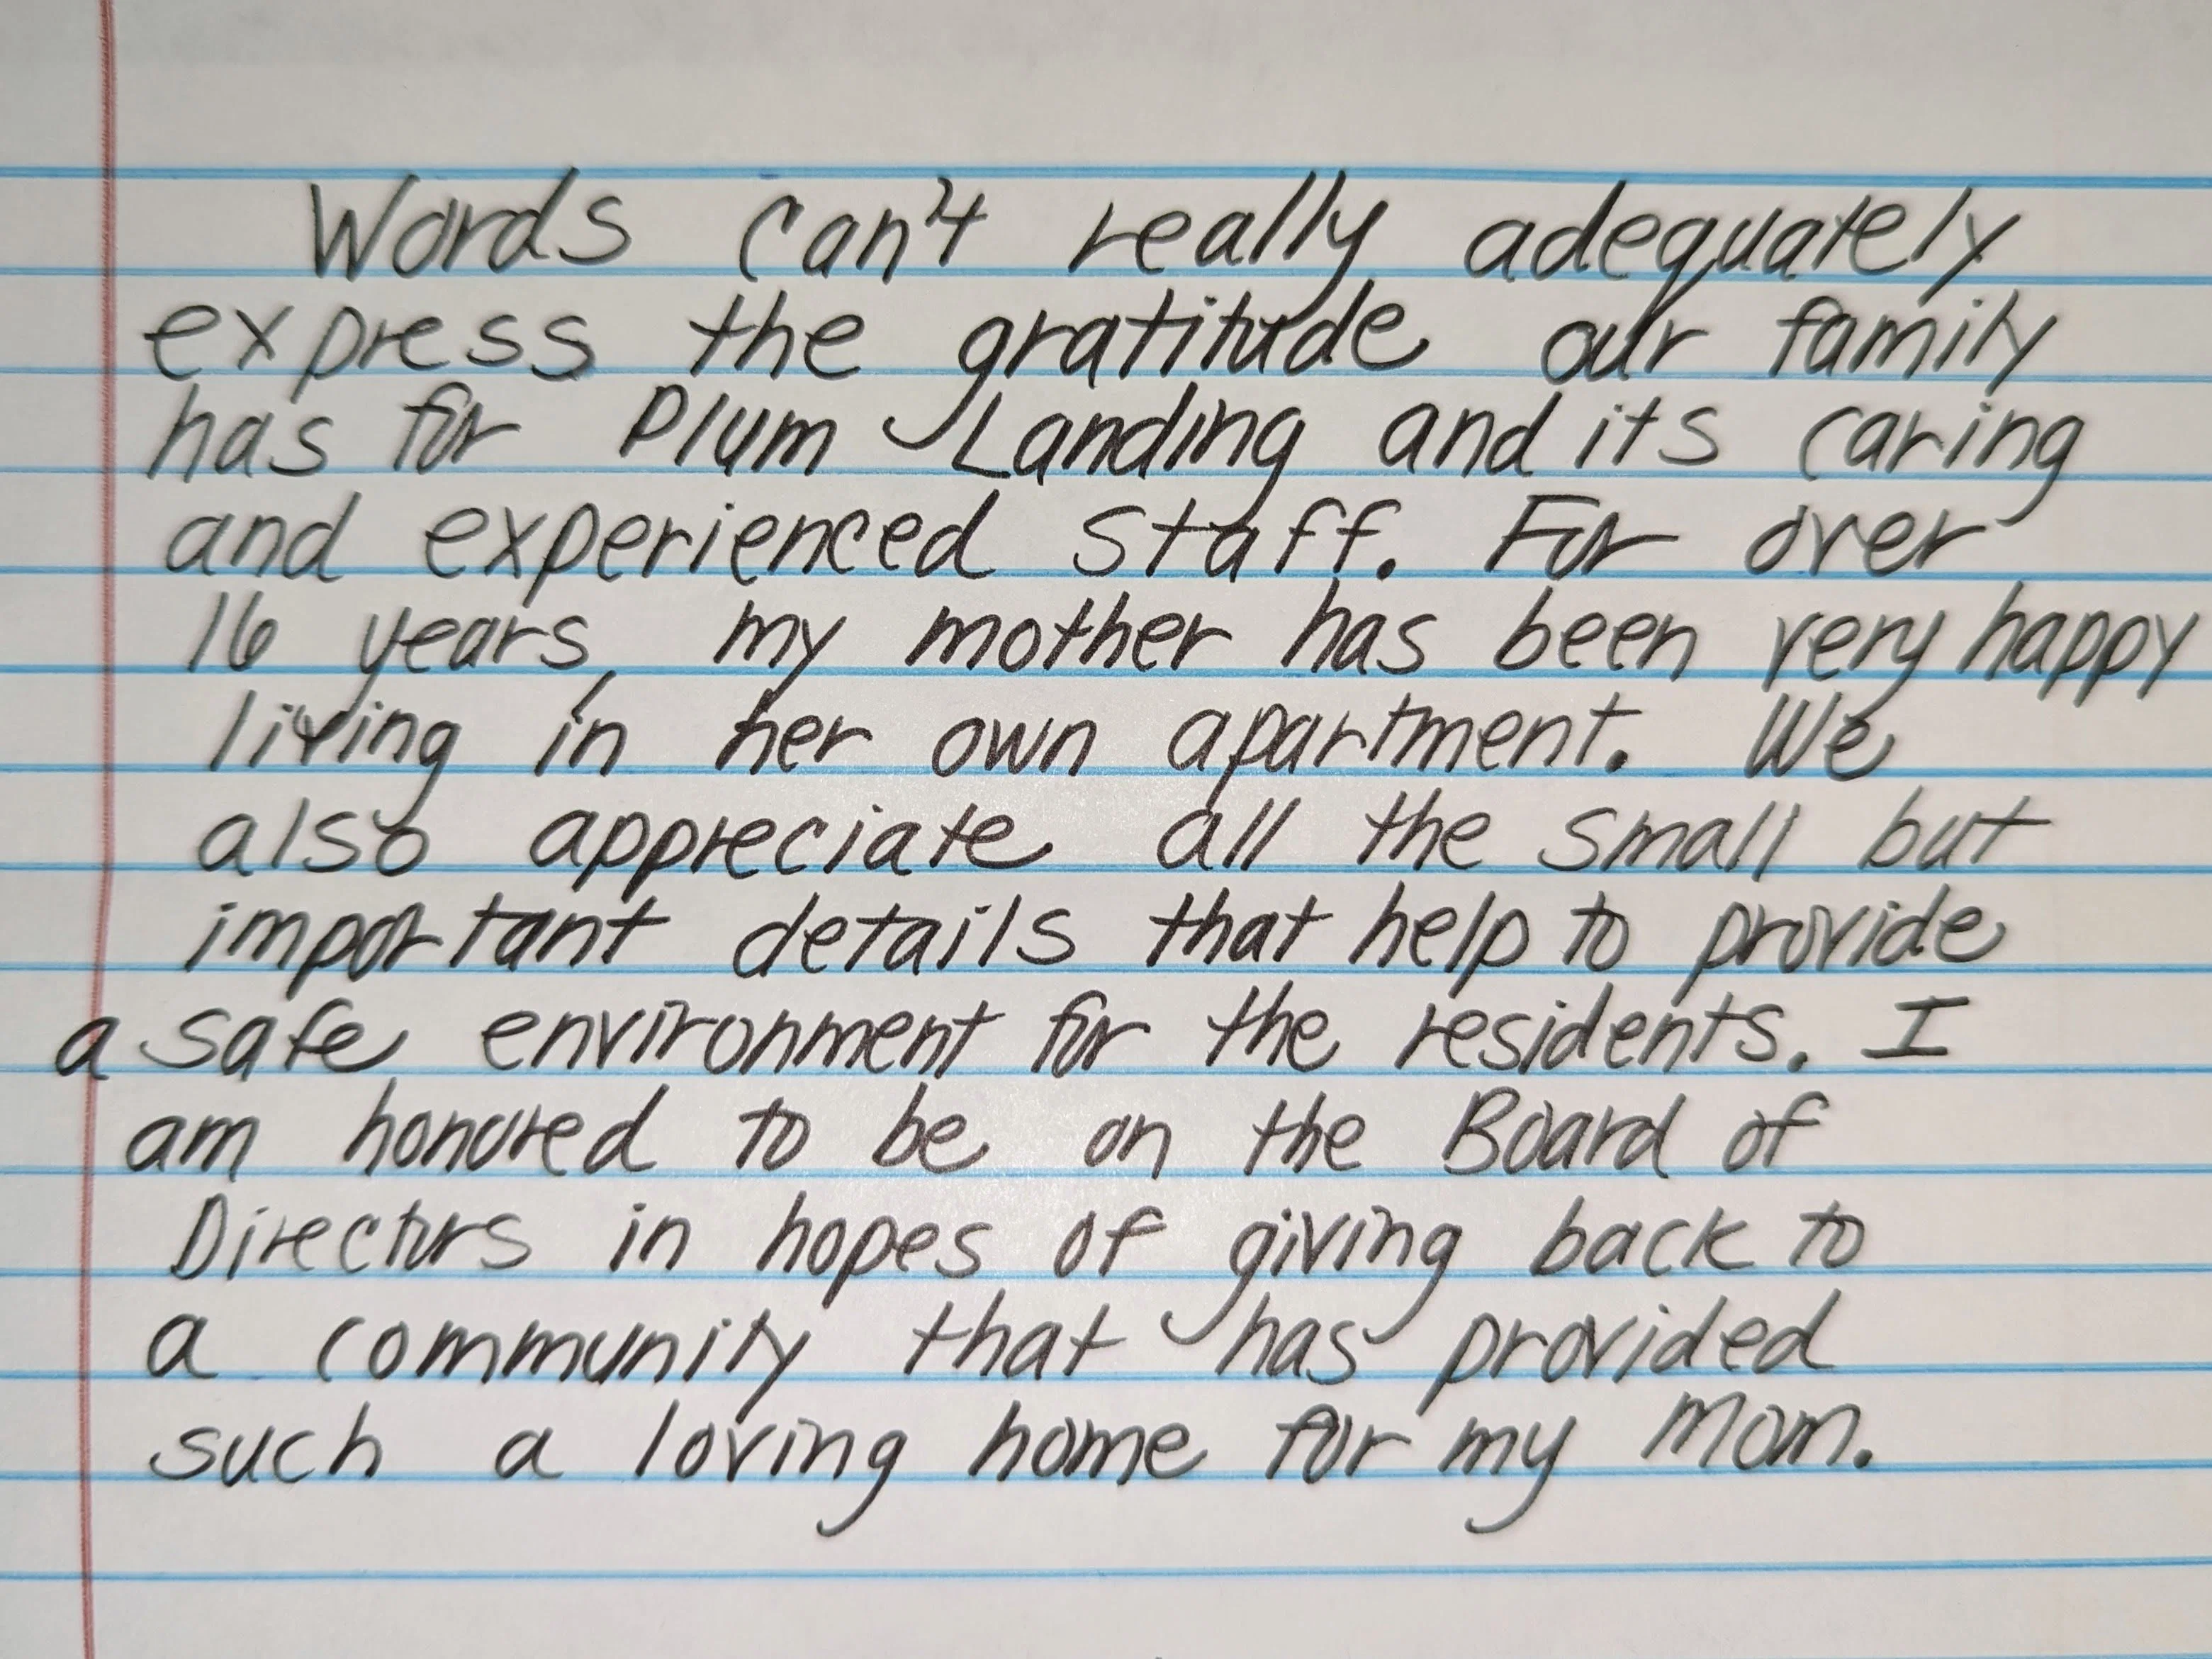 Words can't really adequately
express the gratitude our family
has for Plum Landing and its caring
and experienced staff. For over
16 years, my mother has been very happy
living in her own apartment. We
also appreciate all the small but
important details that help to provide
a safe environment for the residents. I
am honored to be on the Board of
Directors in hopes of giving back to
a community that has provided
such a loving home for my Mom.